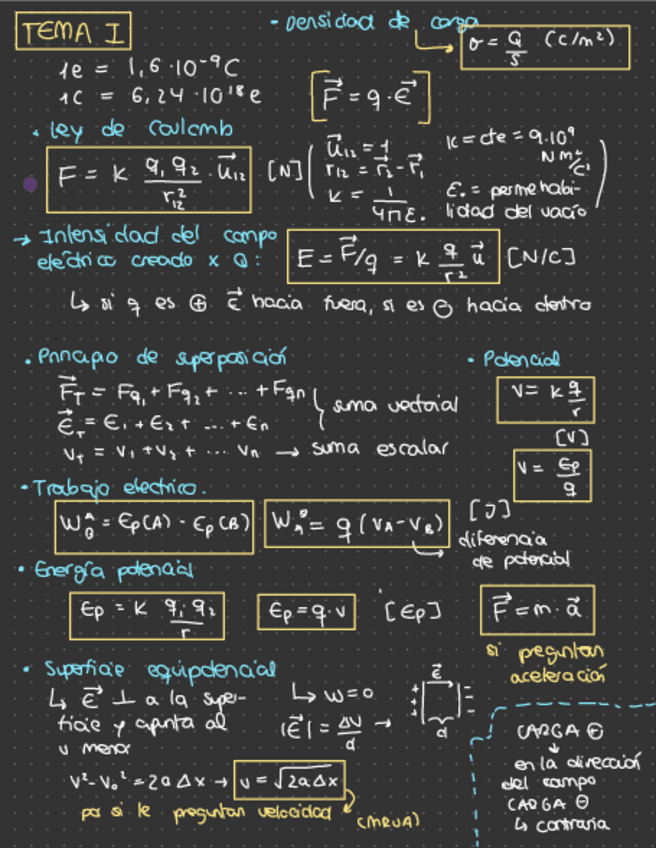 TEMA I
- Densidad de carga
σ = Q/S (C/m²)
1e = 1,6·10⁻⁹C
1C = 6,24·10¹⁸e
[F⃗ = q·E⃗]
· Ley de Coulomb
F = K q₁q₂/r₁₂² · u⃗₁₂ [N]
u⃗₁₂ = 1
r₁₂ = r⃗₂ - r⃗₁
K = 1/4πε₀
K = cte = 9·10⁹ Nm²/C²
ε₀ = permehabi-
lidad del vacío
→ Intensidad del campo
eléctrico creado x Q:
E = F⃗/q = K q/r² u⃗ [N/C]
↳ si q es ⊕ E⃗ hacia fuera, si es ⊖ hacia dentro
· Principio de superposición
F⃗T = Fq₁ + Fq₂ + ... + Fqn
E⃗T = E₁ + E₂ + ... + En
suma vectorial
VT = V₁ + V₂ + ... Vn → suma escalar
· Potencial
V = K q/r
[V]
V = Ep/q
· Trabajo electrico.
W = Ep(A) - Ep(B)
W = q(VA - VB) [J]
↳ diferencia
de potencial
· Energía potencial
Ep = K q₁·q₂/r
Ep = q·V
[Ep]
F⃗ = m·a⃗
si preguntan
aceleración
· Superficie equipotencial
↳ E⃗ ⊥ a la super-
ficie y apunta al
V menor
↳ W = 0
|E⃗| = ΔV/d →
E⃗
d
V² - V₀² = 2aΔx → V = √2aΔx
por si le preguntan velocidad
(MRUA)
CARGA ⊕
↓
en la dirección
del campo
CARGA ⊖
↳ contraria